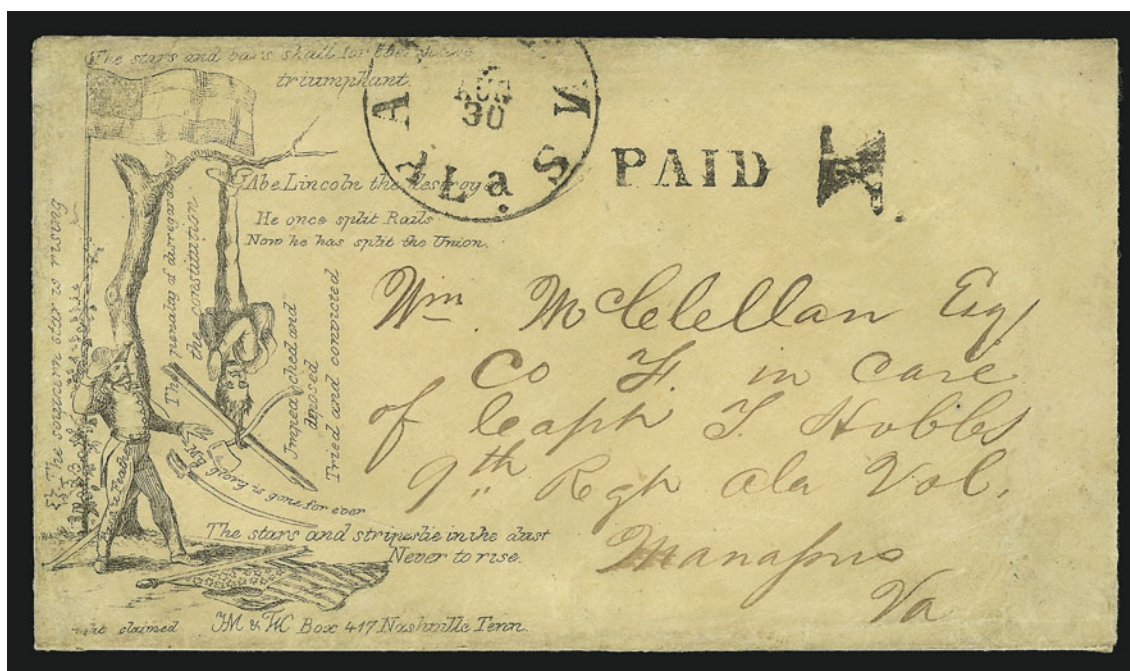 The stars and bars shall for ever
triumphant
AUG
30
A
ALa S
PAID
Abe Lincoln the destroyer
He once split Rails
Now he has split the Union.
The penalty of disregarding
the constitution
Impeached and
deposed
Tried and convicted
glory is gone for ever
The stars and stripes lie in the dust
Never to rise.
claimed
Box 417 Nashville Tenn.
Wm. McClellan Esq
Co F. in care
of Capt T. Hobbs
9th Regt Ala Vol.
Manassas
Va